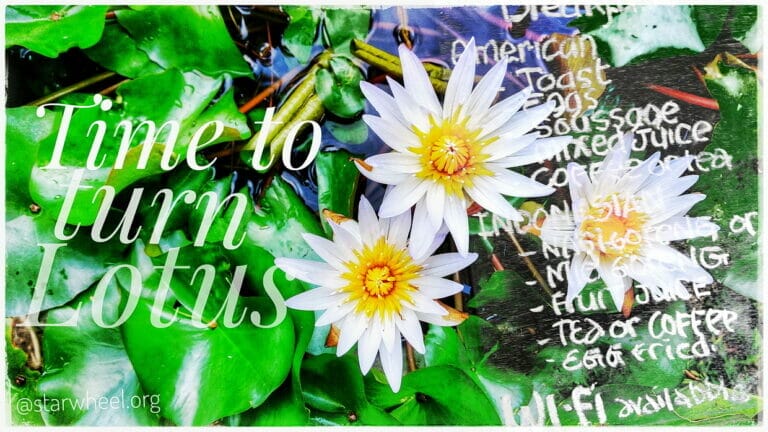 Time to
turn
Lotus
@starwheel.org
Breakfast
American
- Toast
- Eggs
- Soussage
- Mixed Juice
- Coffee or tea
INDONESIAN
- NASI GORENG or
- MIE GORENG
- Fruit JUICE
- TEA or COFFEE
- EGG fried.
WI-Fi available